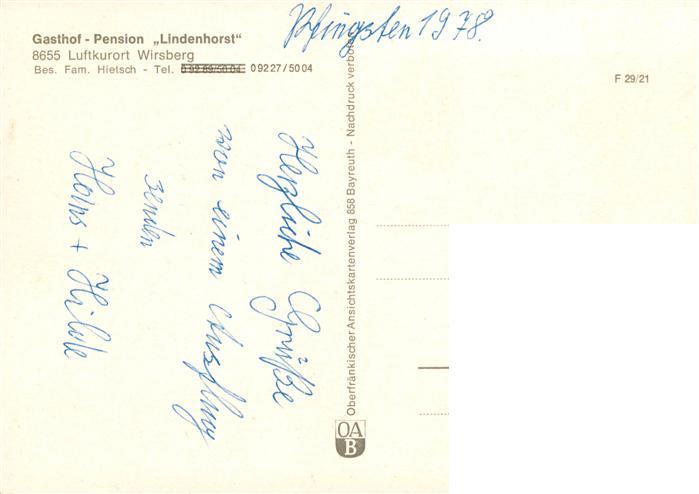 Pfingsten 1978.
Gasthof - Pension „Lindenhorst“
8655 Luftkurort Wirsberg
Bes. Fam. Hietsch - Tel. 0 92 89/50 04 0 92 27 / 50 04
F 29/21
Herzliche Grüße
von einem Ausflug
senden
Hans + Hilde
Oberfränkischer Ansichtskartenverlag 858 Bayreuth - Nachdruck verboten
OA
B